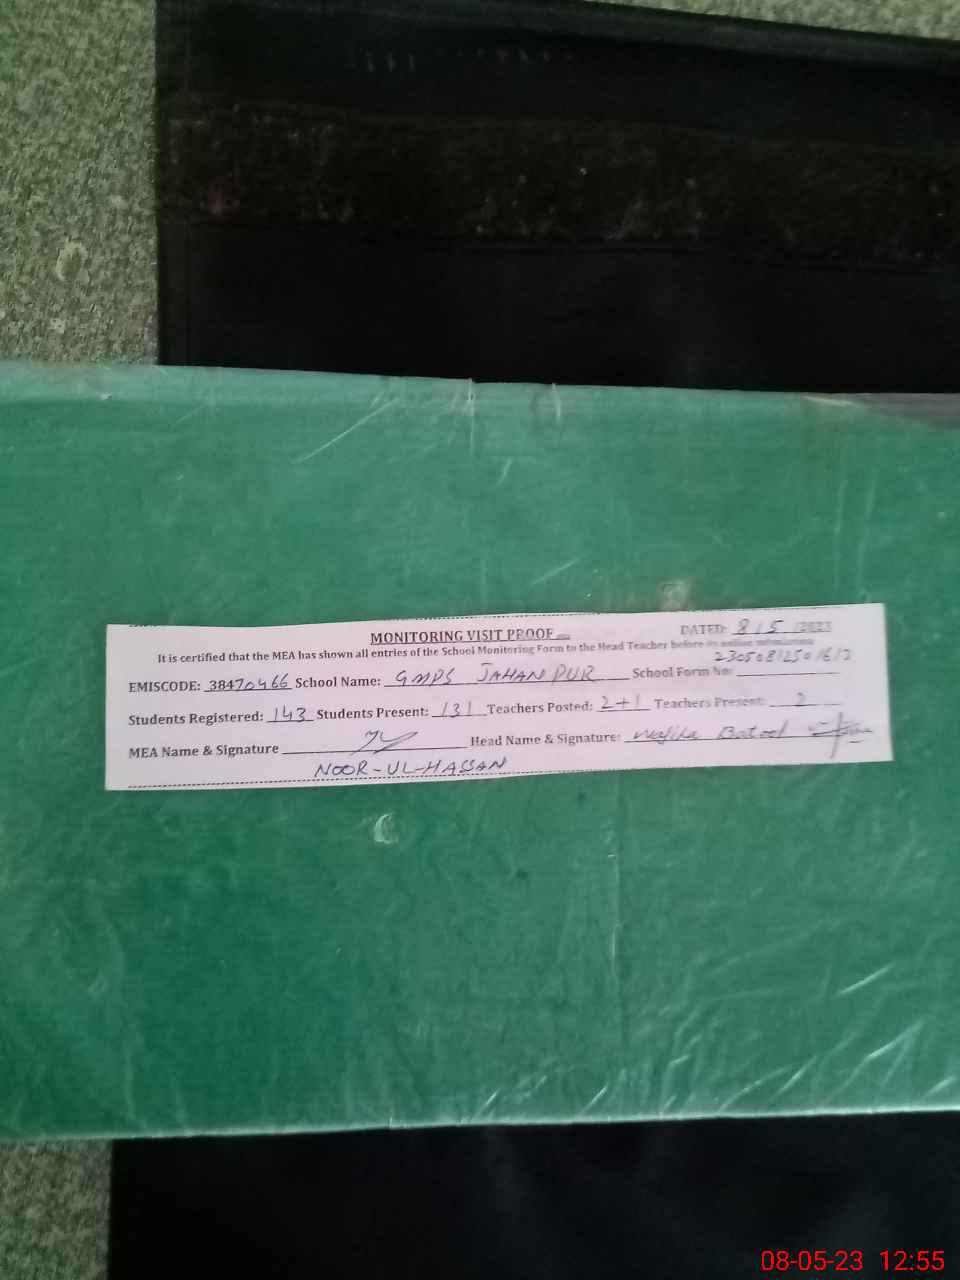 MONITORING VISIT PROOF
DATED: 8/5 /2023
It is certified that the MEA has shown all entries of the School Monitoring Form to the Head Teacher before its online submission
EMISCODE: 38470466 School Name: GMPS JAHANPUR School Form No:
Students Registered: 143 Students Present: 131 Teachers Posted: 2+1 Teachers Present: 2
MEA Name & Signature Head Name & Signature: Batool
NOOR-UL-HASSAN
08-05-23 12:55